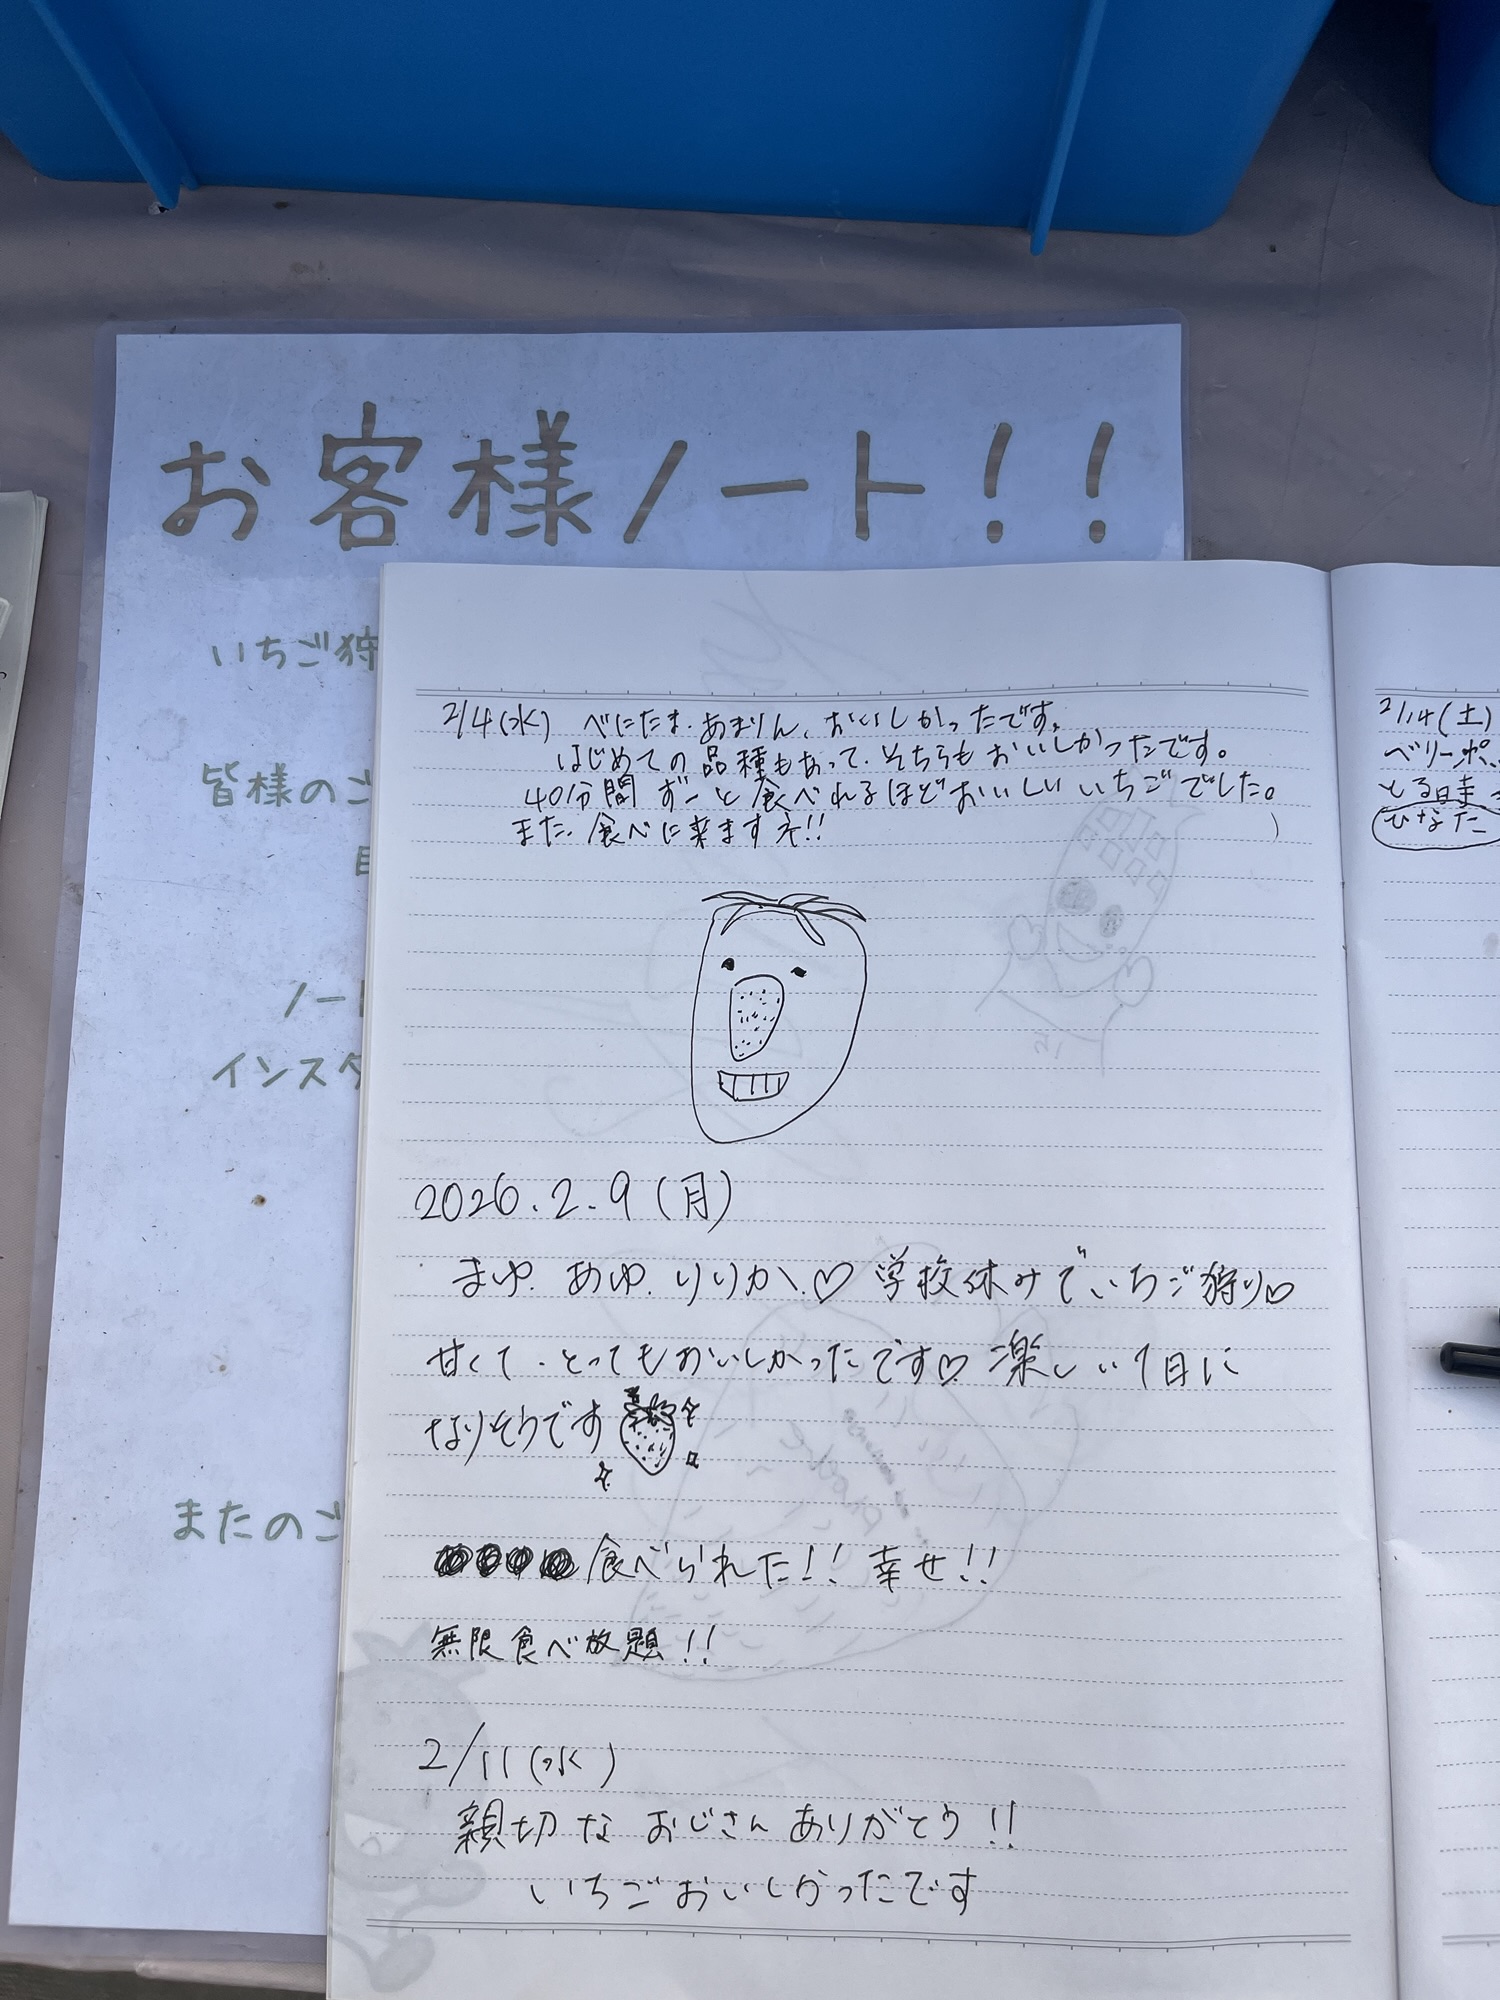 お客様ノート!!
いちご狩
皆様のご
ノート
インスタ
またのご
2/4(水) べにたま、あまりん、おいしかったです。
はじめての品種もあって、そちらもおいしかったです。
40分間ずーと食べれるほどおいしいいちごでした。
また、食べに来ますネ!!
2026.2.9(月)
まゆ、あゆ、りりか、♡ 学校休みでいちご狩り♡
甘くて、とってもおいしかったです♡ 楽しい1日に
なりそうです
食べられた!! 幸せ!!
無限食べ放題!!
2/11(水)
親切なおじさんありがとう!!
いちごおいしかったです
2/14(土)
ベリーポ
とる時ま
ひなた